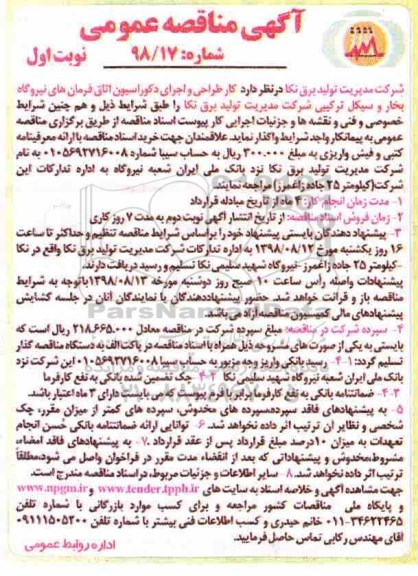 آگهی مناقصه عمومی
شماره: ۹۸/۱۷
نوبت اول
شرکت مدیریت تولید برق نکا درنظر دارد کار طراحی و اجرای دکوراسیون اتاق فرمان های نیروگاه
بخار و سیکل ترکیبی شرکت مدیریت تولید برق نکا را طبق شرایط ذیل و هم چنین شرایط
خصوصی و فنی و نقشه ها و جزئیات اجرایی کار پیوست اسناد مناقصه از طریق برگزاری مناقصه
عمومی به پیمانکار واجد شرایط واگذار نماید. علاقمندان جهت خرید اسناد مناقصه با ارائه معرفینامه
کتبی و فیش واریزی به مبلغ ۳۰۰.۰۰۰ ریال به حساب سیبا شماره ۰۱۰۵۶۹۲۷۱۶۰۰۸ به نام
شرکت مدیریت تولید برق نکا نزد بانک ملی ایران شعبه نیروگاه به اداره تدارکات این
شرکت(کیلومتر ۲۵ جاده زاغمرز) مراجعه نمایند.
۱- مدت زمان انجام کار: ۲ ماه از تاریخ مبادله قرارداد
۲- زمان فروش اسناد مناقصه: از تاریخ انتشار آگهی نوبت دوم به مدت ۷ روز کاری
۳- پیشنهاد دهندگان بایستی پیشنهاد خود را براساس شرایط مناقصه تنظیم و حداکثر تا ساعت
۱۶ روز یکشنبه مورخ ۱۳۹۸/۰۸/۱۲ به اداره تدارکات شرکت مدیریت تولید برق نکا واقع در نکا
-کیلومتر ۲۵ جاده زاغمرز -نیروگاه شهید سلیمی نکا تسلیم و رسید دریافت دارند.
پیشنهادات واصله رأس ساعت ۱۰ صبح روز دوشنبه مورخه ۱۳۹۸/۰۸/۱۳ باتوجه به شرایط
مناقصه باز و قرائت خواهد شد. حضور پیشنهاددهندگان یا نمایندگان آنان در جلسه گشایش
پیشنهادهای مالی کمیسیون مناقصه آزاد می باشد.
۴- سپرده شرکت در مناقصه: مبلغ سپرده شرکت در مناقصه معادل ۲۱۸.۶۶۵.۰۰۰ ریال است که
بایستی به یکی از صورت های مشروحه ذیل همراه با اسناد مناقصه در پاکت الف به دستگاه مناقصه گذار
تسلیم گردد: ۴-۱- رسید بانکی واریز وجه مزبور به حساب سیبا ۰۱۰۵۶۹۲۷۱۶۰۰۸ این شرکت نزد
بانک ملی ایران شعبه نیروگاه شهید سلیمی نکا ۴-۲- چک تضمین شده بانکی به نفع کارفرما
۴-۳- ضمانتنامه بانکی به نفع کارفرما برابر با فرم پیوست که می بایستی دارای ۳ ماه اعتبار باشد.
۵- به پیشنهادهای فاقد سپرده، سپرده های مخدوش، سپرده های کمتر از میزان مقرر، چک
شخصی و نظایر آن ترتیب اثر داده نخواهد شد. ۶- توانایی ارائه ضمانتنامه بانکی حُسن انجام
تعهدات به میزان ۱۰درصد مبلغ قرارداد پس از عقد قرارداد ۷- به پیشنهادهای فاقد امضاء،
مشروط،مخدوش و پیشنهاداتی که بعد از انقضاء مدت مقرر در فراخوان واصل می شود،مطلقاً
ترتیب اثر داده نخواهد شد. ۸- سایر اطلاعات و جزئیات مربوط، در اسناد مناقصه مندرج است.
جهت مشاهده آگهی و خلاصه اسناد به سایت های www.tender.tpph.ir و www.npgm.ir
و پایگاه ملی مناقصات کشور مراجعه و برای کسب موارد بازرگانی با شماره تلفن
۳۴۶۲۲۴۶۵-۰۱۱ خانم حیدری و کسب اطلاعات فنی بیشتر با شماره تلفن ۰۹۱۱۱۵۰۵۲۰۰
آقای مهندس رکابی تماس حاصل فرمایید.
اداره روابط عمومی